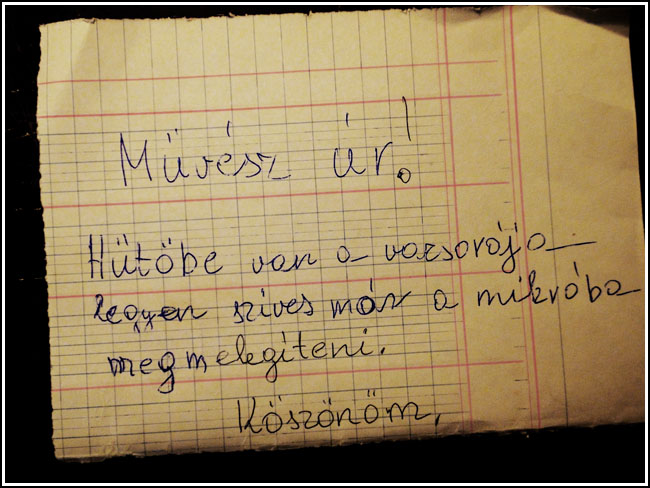 Művész úr!
Hűtőbe van a vazsorája
legyen szives már a mikróba
megmelegíteni.
Köszönöm,